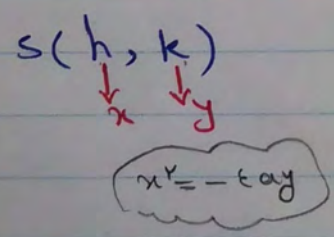 S(h, k)
↓ ↓
x y
x^۲ = - ٤ay